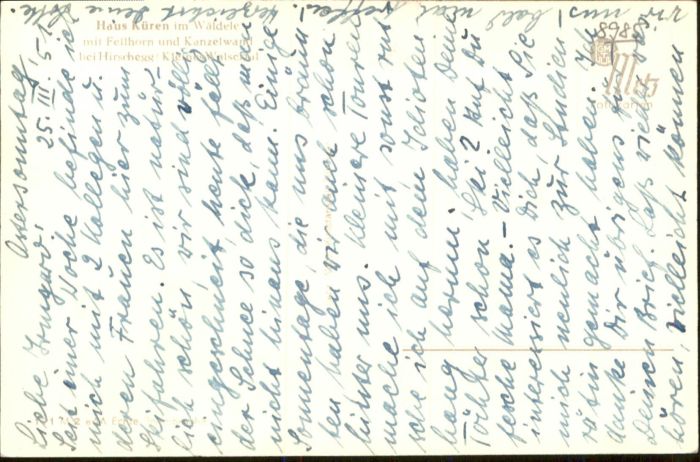 Haus Küren im Wäldele
mit Fellhorn und Kanzelwand
bei Hirschegg, Kleinwalsertal
8988
Ostersonntag,
25. III. 51
Liebe Irmgard!
Seit einer Woche befinde ich
mich mit 2 Kollegen u.
deren Frauen hier zum
Skifahren. Es ist natür-
lich schön, wir sind völlig
eingeschneit, heute fällt
der Schnee so dick, daß man
nicht hinaus kann. Einige
Sonnentage, die uns bräun-
ten haben wir auch schon
hinter uns. Kleinere Touren
mache ich mit, sonst rut-
sche ich auf dem Idioten
hang herum. Haben Deine
Töchter schon Ski? Tut Du
fesche Mama. - Vielleicht
interessiert es Dich, daß Sie
mich neulich zur Studien
rätin gemacht haben. Ich
danke Dir übrigens für
Deinen Brief. Laß viel
hören, vielleicht können
wir uns bald mal treffen!
Herzlichst Deine